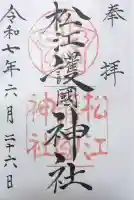 奉拝
松江護國神社
令和七年六月二十六日
松江
神社